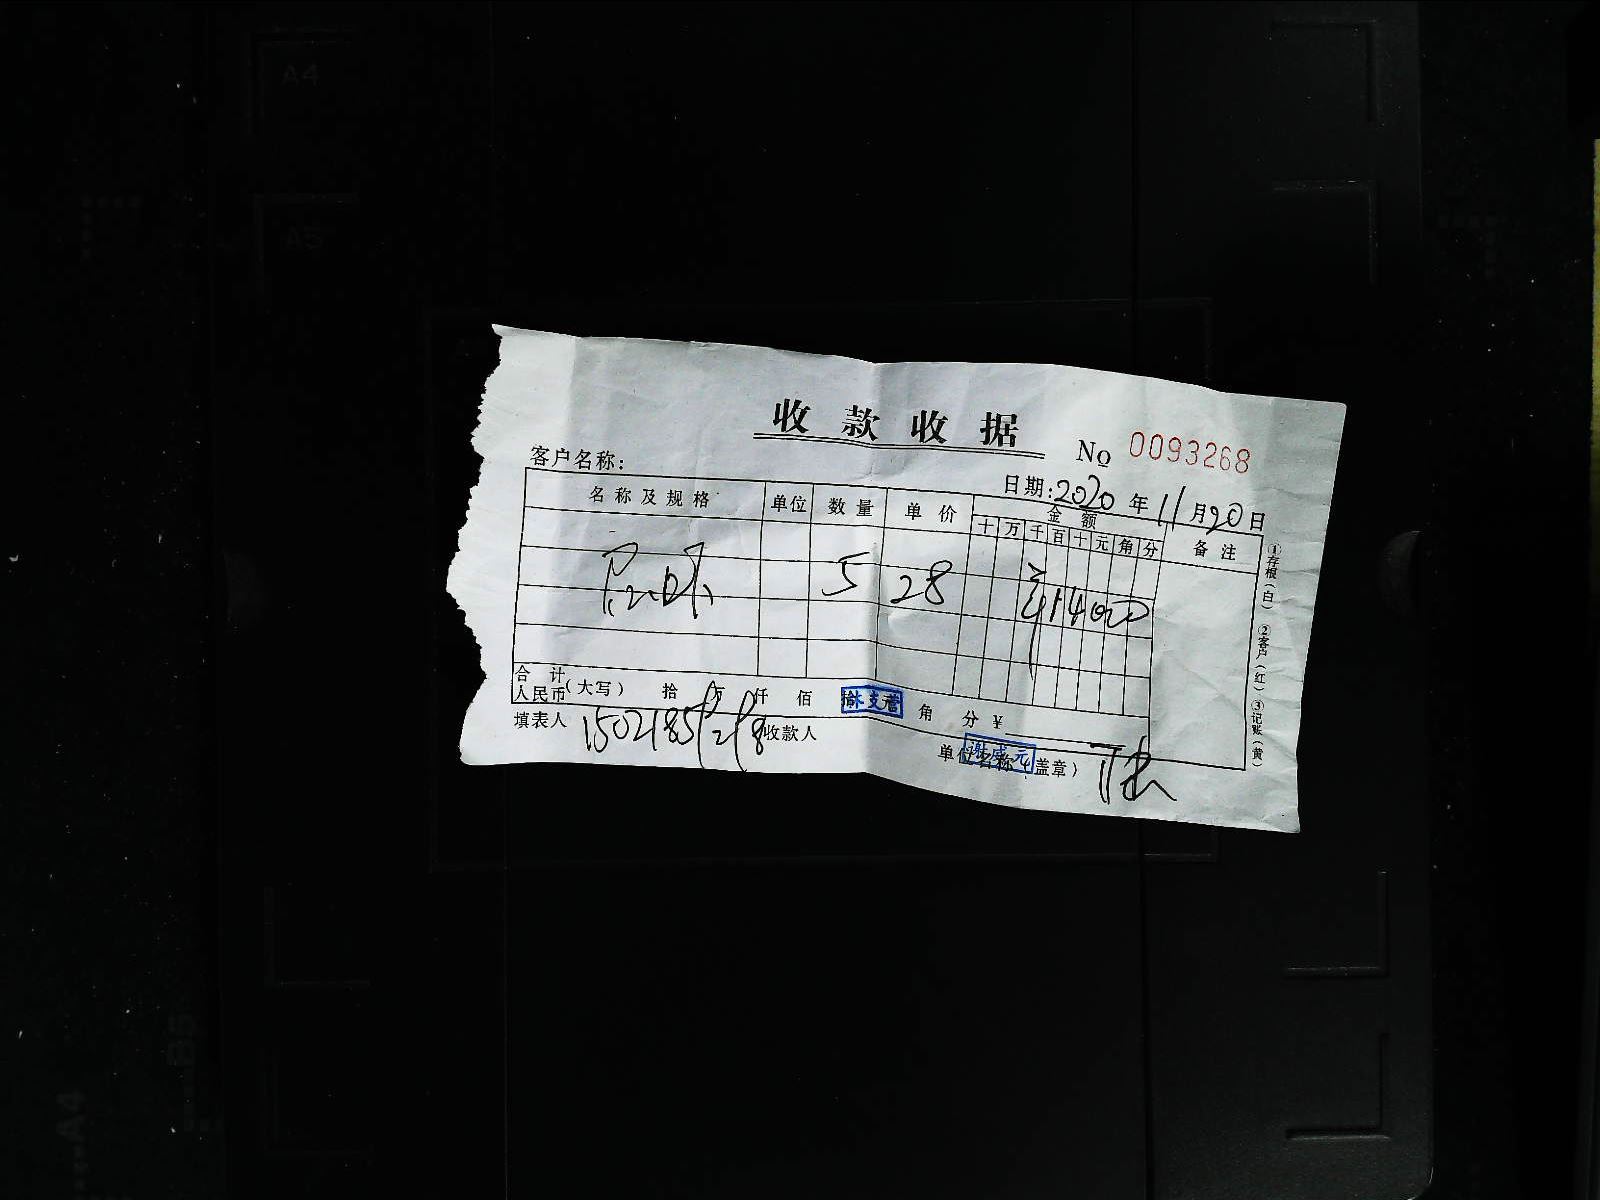 收款收据
No 0093268
客户名称:
日期:2020年11月20日
名称及规格 单位 数量 单价 金额 备注
十万千百十元角分
5 28 14000
合计
人民币(大写) 拾 万 仟 佰 角 分 ¥
填表人 收款人
单位名称(盖章)
①存根(白) ②客户(红) ③记账(黄)
A4
A5
B5
A4